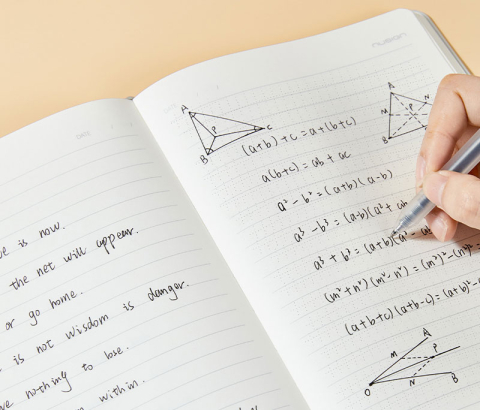 e is now.
the net will appear.
or go home.
is not wisdom is danger.
nothing to lose.
within.
nusign
A
P
B
C
A
N
M
P
B
(a+b)+c=a+(b+c)
a(b+c)=ab+ac
a²-b²=(a+b)(a-b)
a³-b³=(a-b)(a²+ab
a³+b³=(a+b)(a²-ab
(m²+n²)(m²-n²)=(m²)²-(n²)²=
(a+b+c)(a+b-c)=(a+b)²-
A
M
P
O
N
B